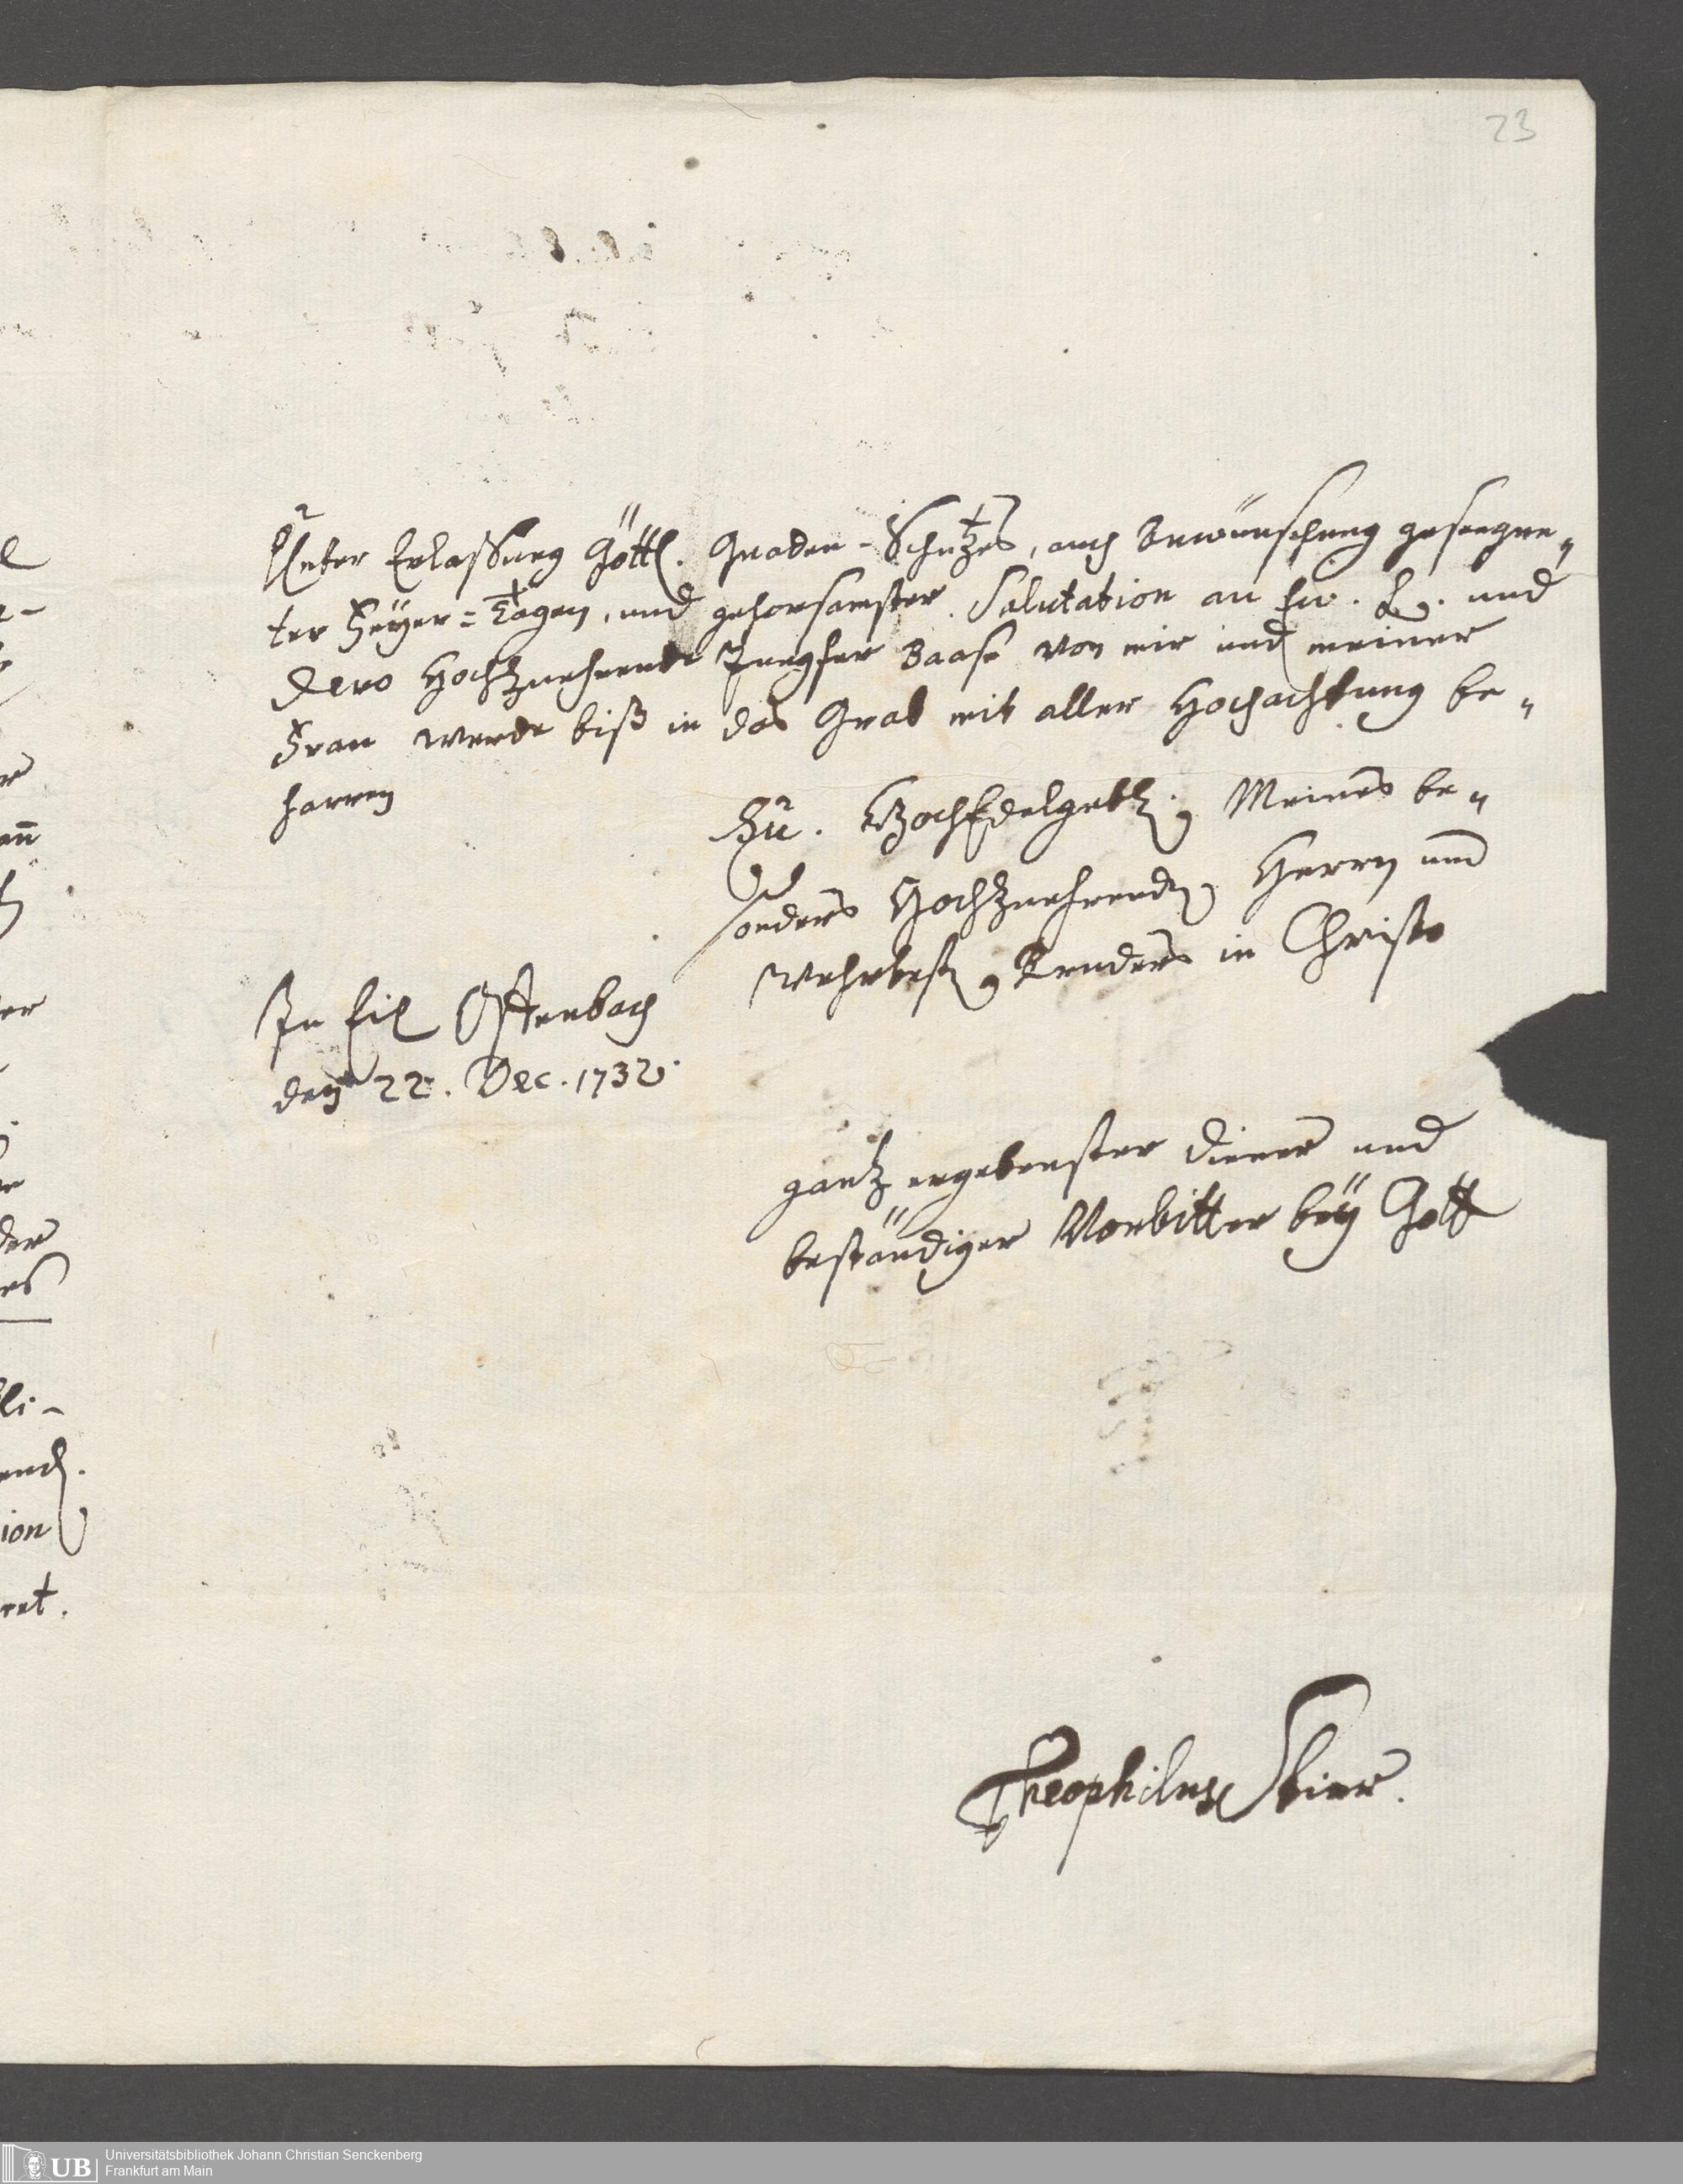 23
Unter Erlassung Göttl. Gnaden-Schutzes, auch Anwünschung gesegne„
ter Feÿer=Tagen, und gehorsamster Salutation an Ew. L. und
Dero Hochzuehrende Jungfer Baase von mir und meiner
Frau werde biß in das Grab mit aller Hochachtung be„
harren
Eu. HochEdelgeb. Meines be„
sonders Hochzuehrenden Herrn und
Wehrtesten Bruders in Christo
In Eil Offenbach
den 22. Dec. 1732.
gantz ergebenster Diener und
beständiger Vorbitter beÿ Gott
Theophilus Stier.
der
li-
ion
ret.
UB
Universitätsbibliothek Johann Christian Senckenberg
Frankfurt am Main